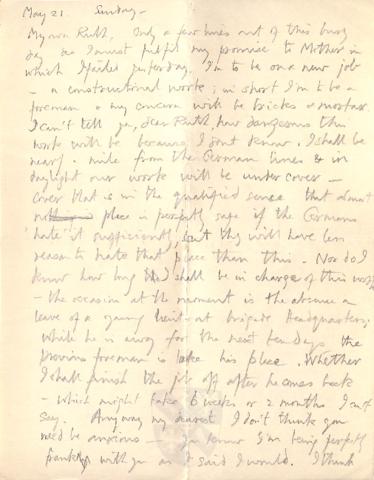 May 21. Sunday –
My own Ruth, Only a few lines out of this busy
day as I must fulfil my promise to Mother in
which I failed yesterday. I'm to be on a new job
– a constructional work; in short I'm to be a
foreman & my concern will be bricks & mortar.
I can't tell you, dear Ruth, how dangerous this
work will be because I don't know. I shall be
nearly a mile from the German lines & in
daylight our work will be under cover –
cover that is in the qualified sense that almost
no place is perfectly safe if the Germans
'hate' it sufficiently, but they will have less
reason to hate that place than this. Nor do I
know how long I shall be in charge of this work
– the occasion at the moment is the absence on
leave of a young lieut. at Brigade Headquarters;
while he is away for the next ten days the
previous foreman is to take his place. Whether
I shall finish the job off after he comes back
– which might take 6 weeks or 2 months I can't
say. Anyway my dearest I don't think you
need be anxious – you know I'm being perfectly
frank with you as I said I would. I think